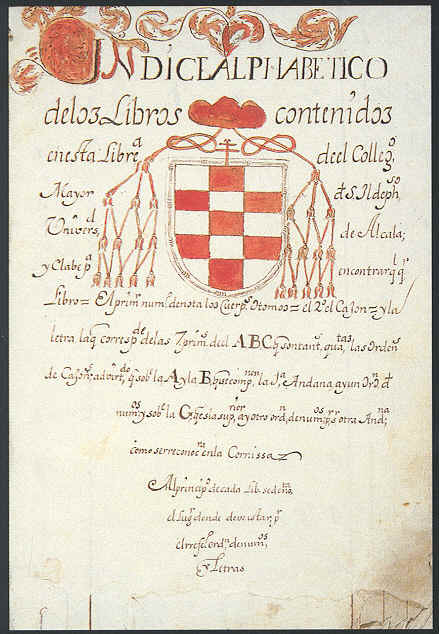 INDICE ALPHABETICO
delos Libros contenidos
en esta Libre.ª deel Colleg.º
Mayor d S. Ildeph.so
Univers.d de Alcala;
y Clabe p.ª encontrar q.l q.r
Libro = El prim.r num.o denota los Cuerp.s Otomos = el 2.º el Cajon = y la
letra la q corresp.de de las 7 prim.s deel A B C q sontant.s qua.tas las Orden.s
de Cajon.s advirt.do q sob.e la A y la B q se comp.nen la J.ª Andana ay un Ord.n d
num.os y sob.e la C q es ia sup.rior ay otro ord.n de num.os p.r otra And.na
como se rreconoc.ra en la Cornissa
Al princip.o de cada Lib. se deno.ta
el Lug.r donde deve estar, p.r
el rrefe.do ord.n de num.os
y Letras